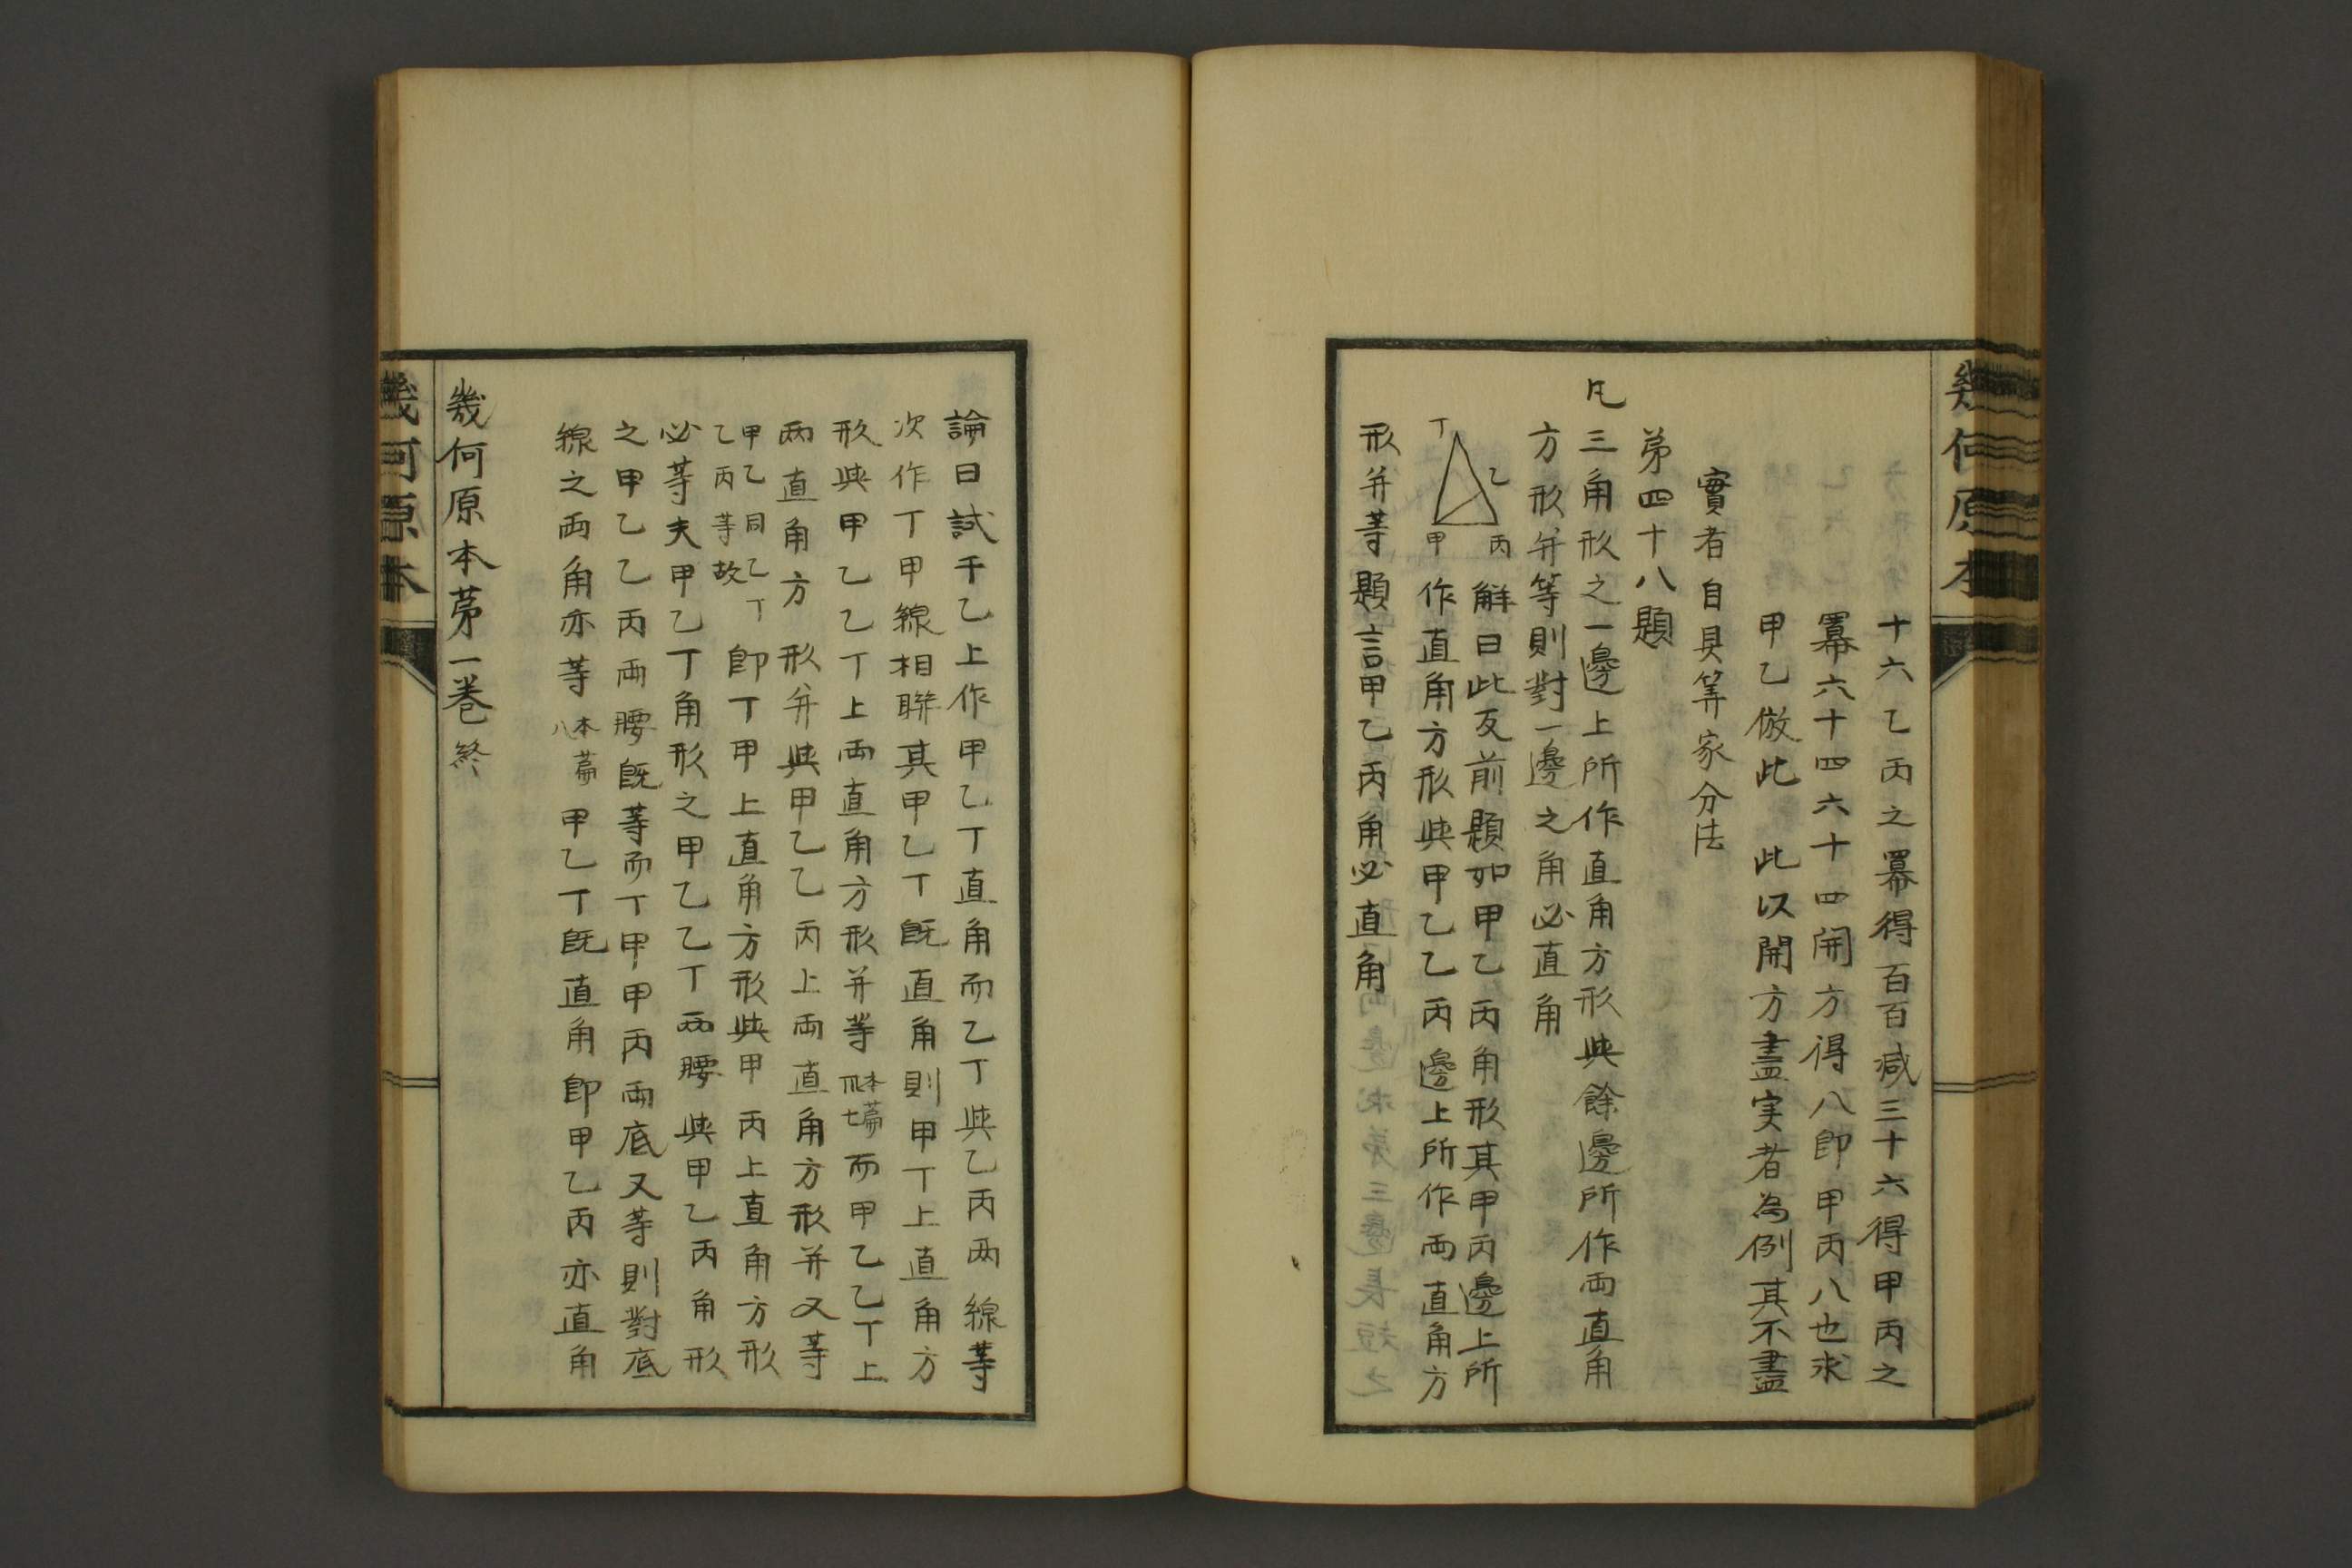 幾何原本
十六乙丙之羃得百百減三十六得甲丙之
羃六十四六十四開方得八卽甲丙八也求
甲乙倣此　此以開方盡実者為例其不盡
實者自具筭家分法
第四十八題
凡三角形之一邊上所作直角方形與餘邊所作両直角
方形并等則對一邊之角必直角
丁
乙
甲
丙
解曰此反前題如甲乙丙角形其甲丙邊上所
作直角方形與甲乙乙丙邊上所作両直角方
形并等題言甲乙丙角必直角
論曰試于乙上作甲乙丁直角而乙丁與乙丙两線等
次作丁甲線相聯其甲乙丁既直角則甲丁上直角方
形與甲乙乙丁上両直角方形并等本篇四七而甲乙乙丁上
两直角方形并與甲乙乙丙上両直角方形并又等
甲乙同乙丁乙丙等故卽丁甲上直角方形與甲丙上直角方形
必等夫甲乙丁角形之甲乙乙丁两腰與甲乙丙角形
之甲乙乙丙両腰既等而丁甲甲丙両底又等則對底
線之両角亦等本篇八甲乙丁既直角卽甲乙丙亦直角
幾何原本第一卷終
幾何原本